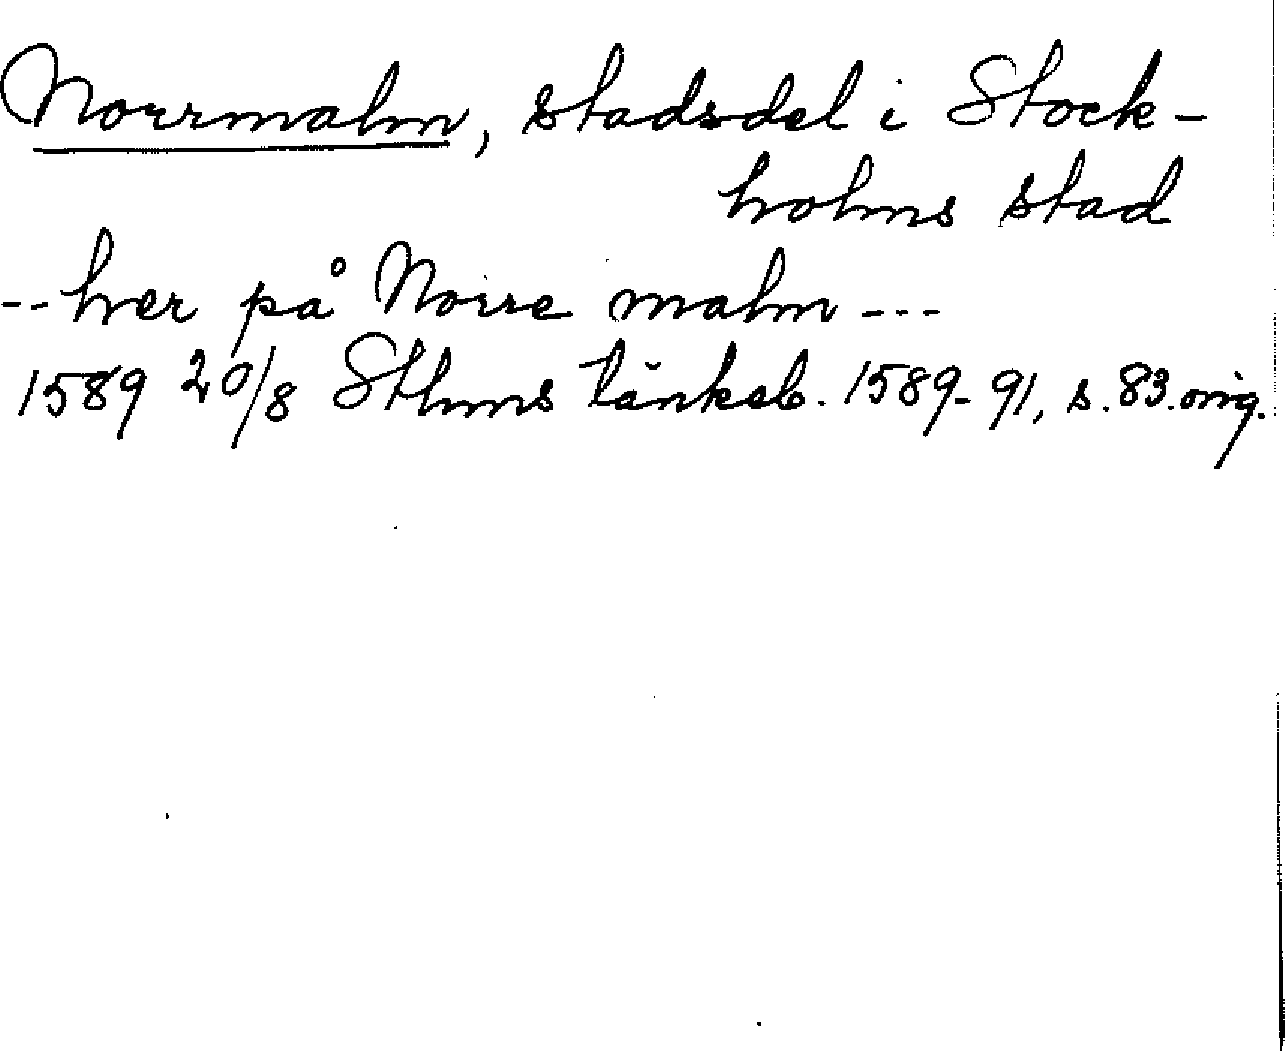 Norrmalm, stadsdel i Stock-
holms stad
-- her på Norre malm ---
1589 20/8 Sthms tänkeb. 1589-91, s. 83. orig.